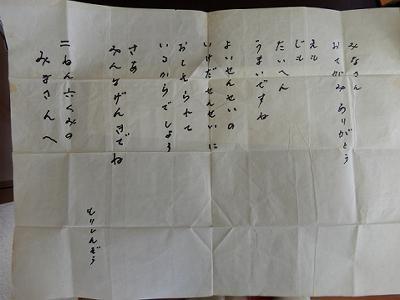 みなさん
おてがみ ありがとう
えも
じも
たいへん
うまいですね
よいせんせいの
いけだせんせいに
おしえられて
いるからでしょう
さあ
みんなげんきでね
二ねん六くみの
みなさんへ
もりしんぞう